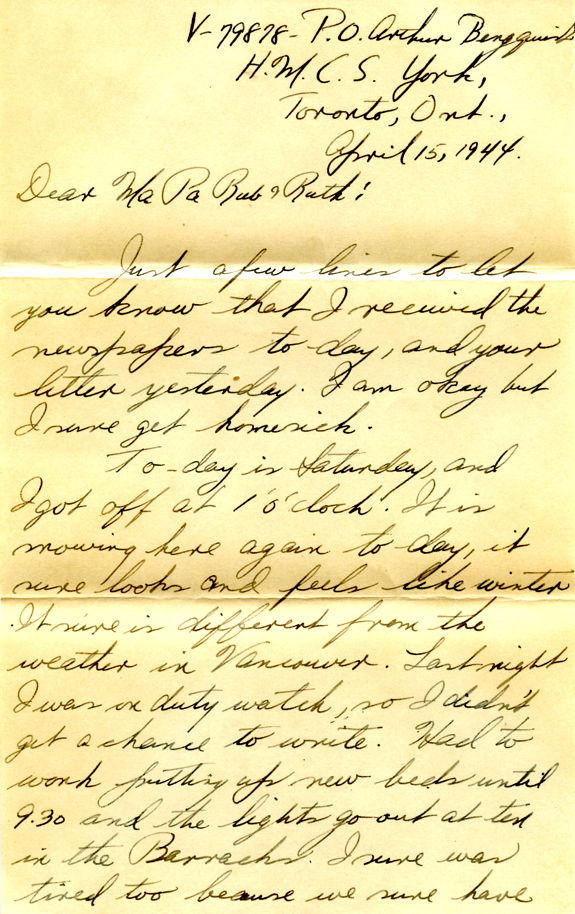 V-79878- P.O. Arthur Bergquist
H.M.C.S. York,
Toronto, Ont.,
April 15, 1944.
Dear Ma Pa Bub & Ruth:
Just a few lines to let
you know that I received the
newspapers to-day, and your
letter yesterday. I am okay but
I sure get homesick.
To-day is Saturday, and
I got off at 1 o'clock. It is
snowing here again to-day, it
sure looks and feels like winter
. It sure is different from the
weather in Vancouver. Last night
I was on duty watch, so I didn't
get a chance to write. Had to
work putting up new beds until
9.30 and the lights go out at ten
in the Barracks. I sure was
tired too because we sure have